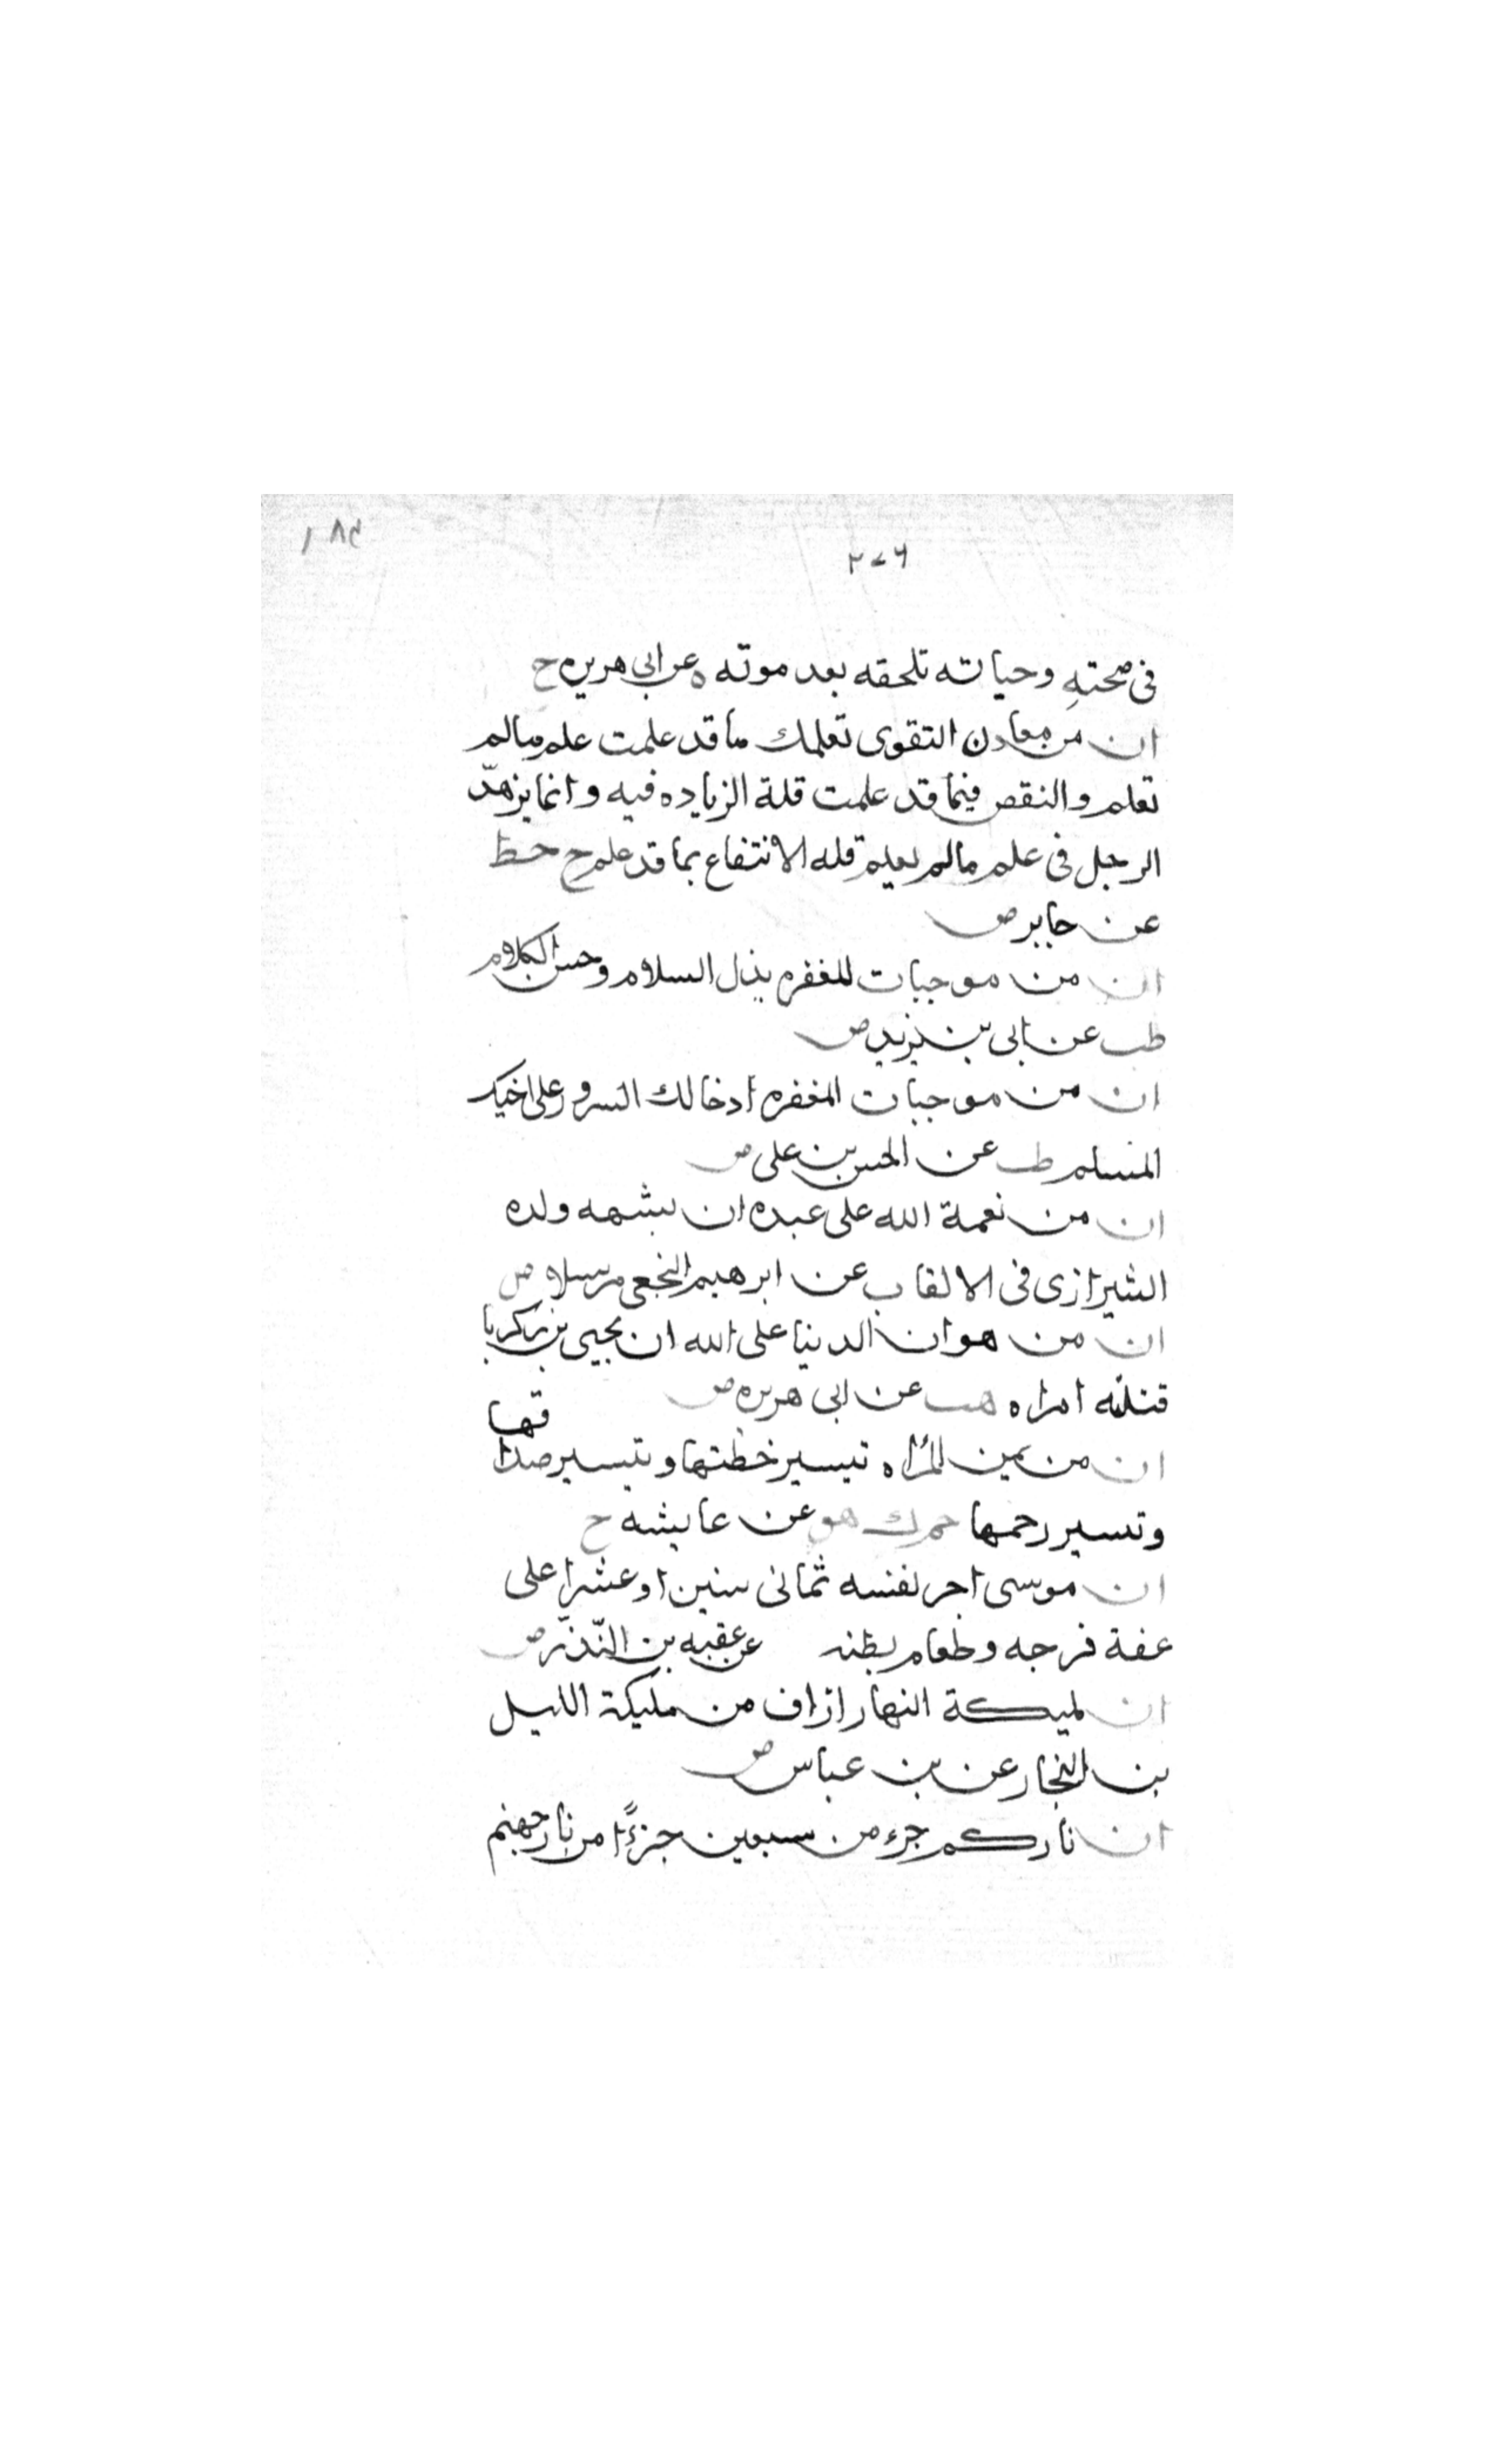 في صحته وحياته تلحقه بعد موته ه عن ابي هريره ح
ان من معادن التقوى تعلمك ما قد علمت علم مالم
تعلم والنقص فيما قد علمت قلة الزياده فيه وانما يزهد
الرجل في علم مالم يعلم قله الانتفاع بما قد علم ح خط
عن جابر ض
ان من موجبات المغفره بذل السلام وحسن الكلام
طب عن هانى بن يزيد ض
ان من موجبات المغفره ادخالك السرور على اخيك
المسلم طب عن الحسن بن على ض
ان من نعمة الله على عبده ان يشبهه ولده
الشيرازى فى الالقاب عن ابرهيم النخعى مرسلا ض
ان من هوان الدنيا على الله ان يحيى بن زكريا
قتلته امراه هب عن ابى هريره ض
ان من يمن المراه تيسير خطبتها وتيسير صداقها
وتيسير رحمها حم ك هق عن عايشه ح
ان موسى اجر نفسه ثمانى سنين او عشرا على
عفة فرجه وطعام بطنه عن عقبه بن النّدّر ض
ان لميكة النهار اراف من مليكة الليل
بن النجار عن بن عباس ض
ان ناركم جزء من سبعين جزءًا من نار جهنم